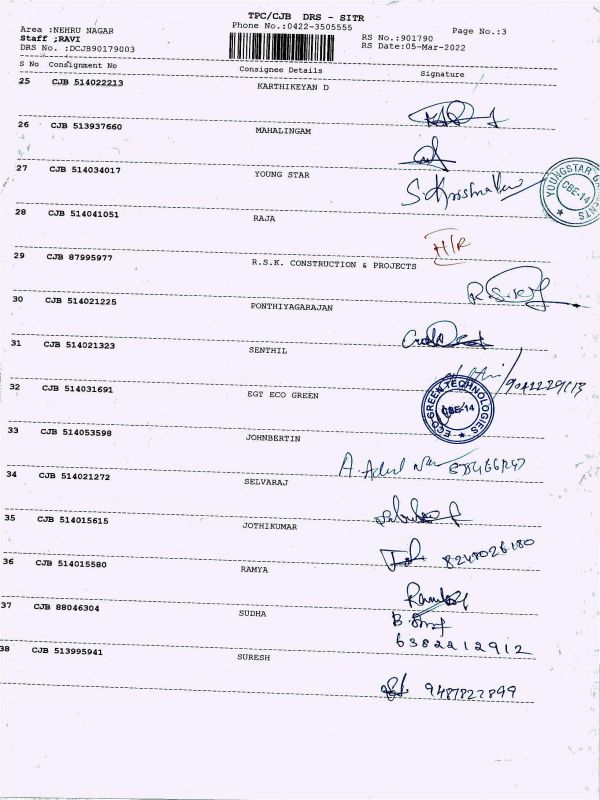 TPC/CJB DRS - SITR
Area :NEHRU NAGAR
Phone No.:0422-3505555
Page No.:3
Staff ;RAVI
RS No.:901790
DRS No. :DCJB90179003
RS Date:05-Mar-2022
S No Consignment No Consignee Details Signature
25 CJB 514022213 KARTHIKEYAN D
26 CJB 513937660 MAHALINGAM
27 CJB 514034017 YOUNG STAR
S. Krishna
YOUNGSTAR GARMENTS
CBE-14
28 CJB 514041051 RAJA
H/R
29 CJB 87995977 R.S.K. CONSTRUCTION & PROJECTS
30 CJB 514021225 PONTHIYAGARAJAN
31 CJB 514021323 SENTHIL
32 CJB 514031691 EGT ECO GREEN
ECO GREEN TECHNOLOGIES
CBE-14
33 CJB 514053598 JOHNBERTIN
34 CJB 514021272 SELVARAJ
35 CJB 514015615 JOTHIKUMAR
8248026180
36 CJB 514015580 RAMYA
37 CJB 88046304 SUDHA
6382212912
38 CJB 513995941 SURESH
9487827899